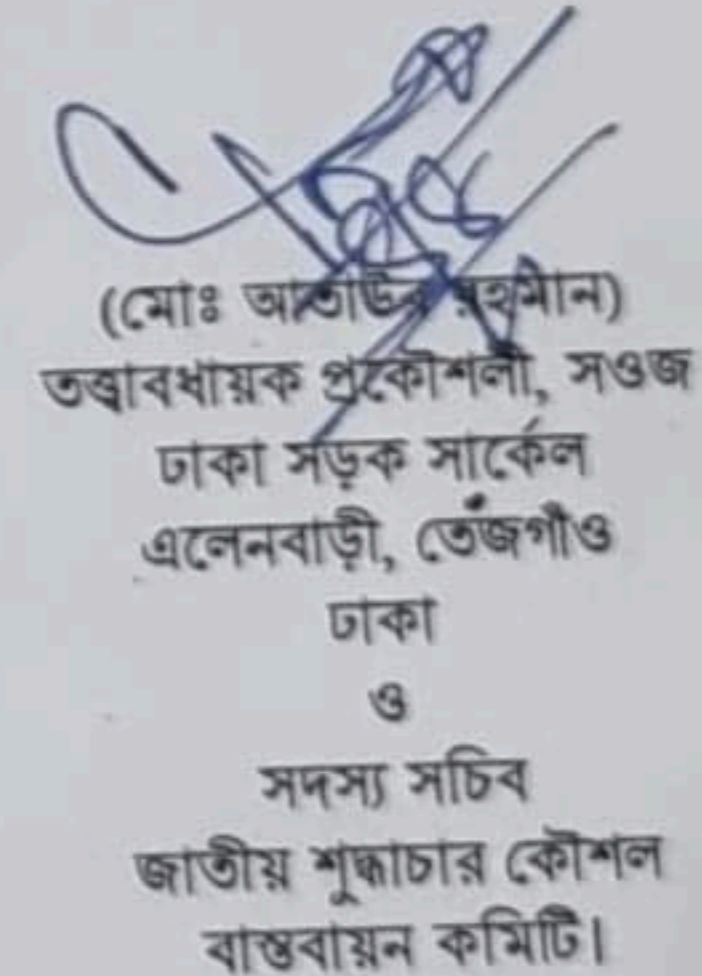 (মোঃ আতাউর রহমান)
তত্ত্বাবধায়ক প্রকৌশলী, সওজ
ঢাকা সড়ক সার্কেল
এলেনবাড়ী, তেঁজগাঁও
ঢাকা
ও
সদস্য সচিব
জাতীয় শুদ্ধাচার কৌশল
বাস্তবায়ন কমিটি।